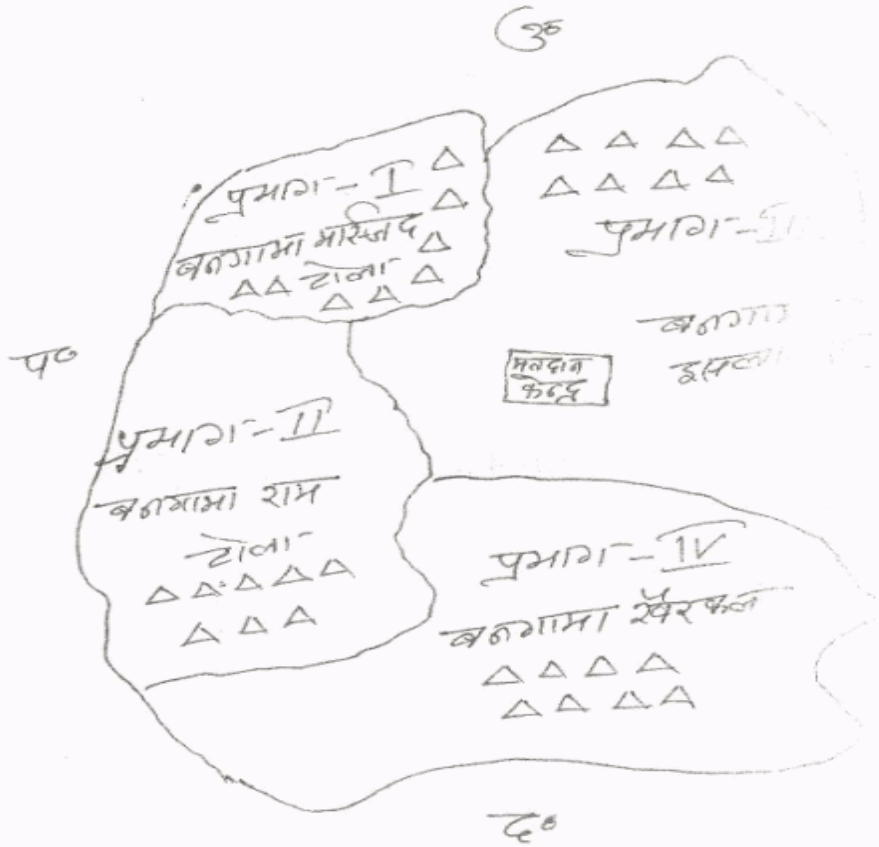 उ०
प्रभाग - I
बनगामा मस्जिद
टोला
प्रभाग -
मतदान
केन्द्र
प०
प्रभाग - II
बनगामा राम
टोला
प्रभाग - IV
बनगामा खैरकल
द०